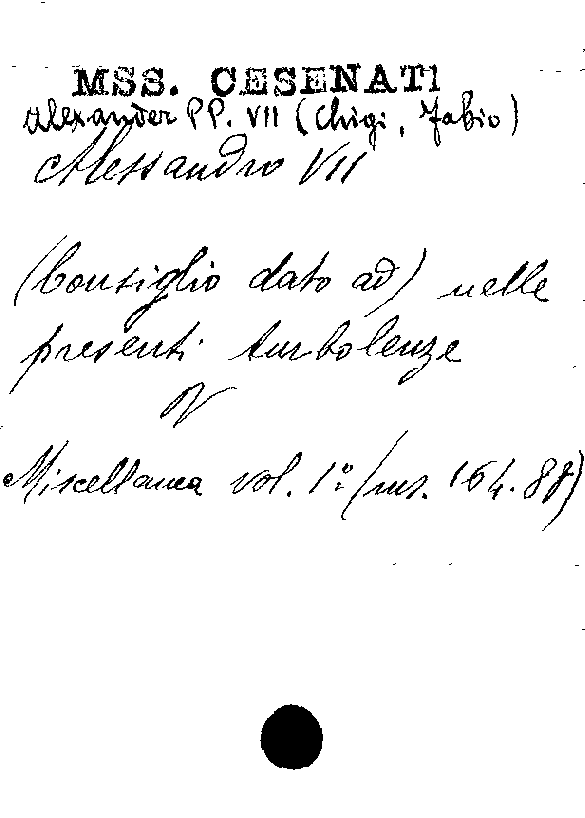 MSS. CESENATI
Alexander PP. VII (Chigi, Fabio)
Alessandro VII
(Consiglio dato ad) nelle
presenti turbolenze
V
Miscellanea vol. 1º (ms. 164.87)